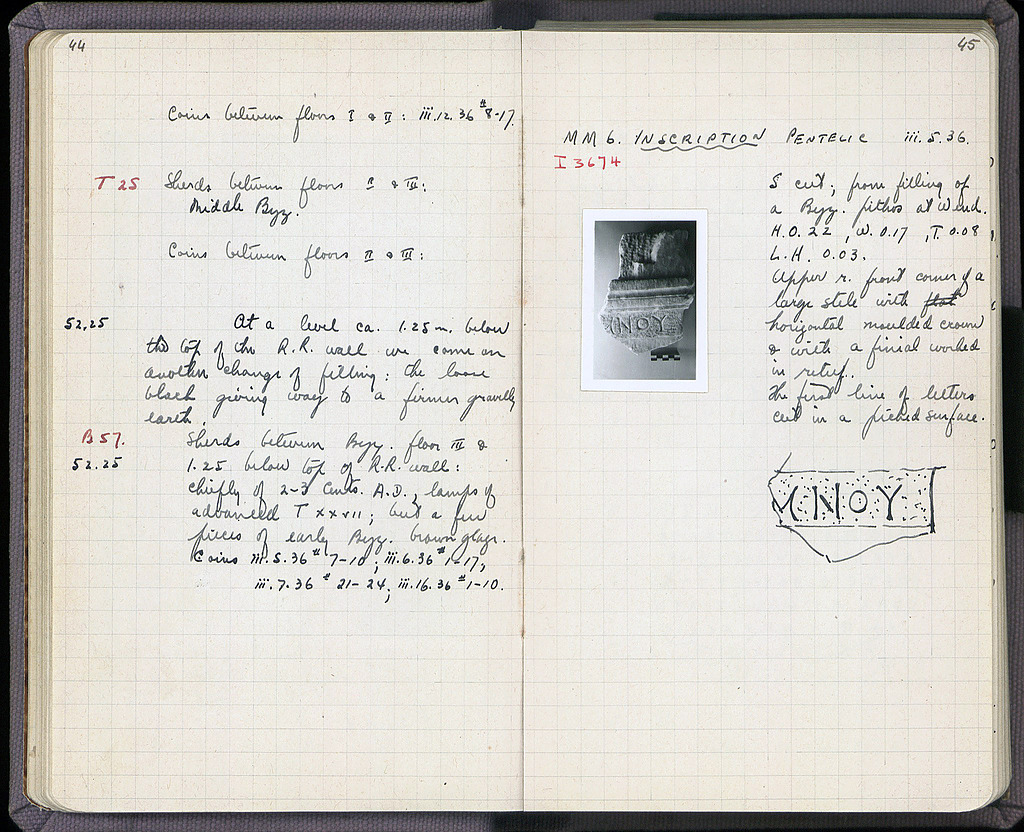 44
Coins between floors I & II : iii.12.36 #8-17.
T 25 Sherds between floors II & III:
Middle Byz.
Coins between floors II & III:
52.25 At a level ca. 1.25 m. below
the top of the R.R. wall we come on
another change of filling : the loose
black giving way to a firmer gravelly
earth.
B 57. Sherds between Byz. floor III &
52.25 1.25 below top of R.R. wall :
chiefly of 2-3 Cents. A.D., lamps of
advanced T XXVII ; but a few
pieces of early Byz. brown glaze.
Coins iii.5.36 # 7-10 ; iii.6.36 # 1-17,
iii.7.36 # 21-24 ; iii.16.36 # 1-10.
45
MM 6. INSCRIPTION PENTELIC iii.5.36.
I 3674
S cut ; from filling of
a Byz. pithos at W end.
H. 0.22 , W. 0.17 , T. 0.08
L.H. 0.03.
Upper r. front corner of a
large stele with flat
horizontal moulded crown
& with a finial worked
in relief.
The first line of letters
cut in a picked surface.
ΝΟΥ
ΝΟΥ